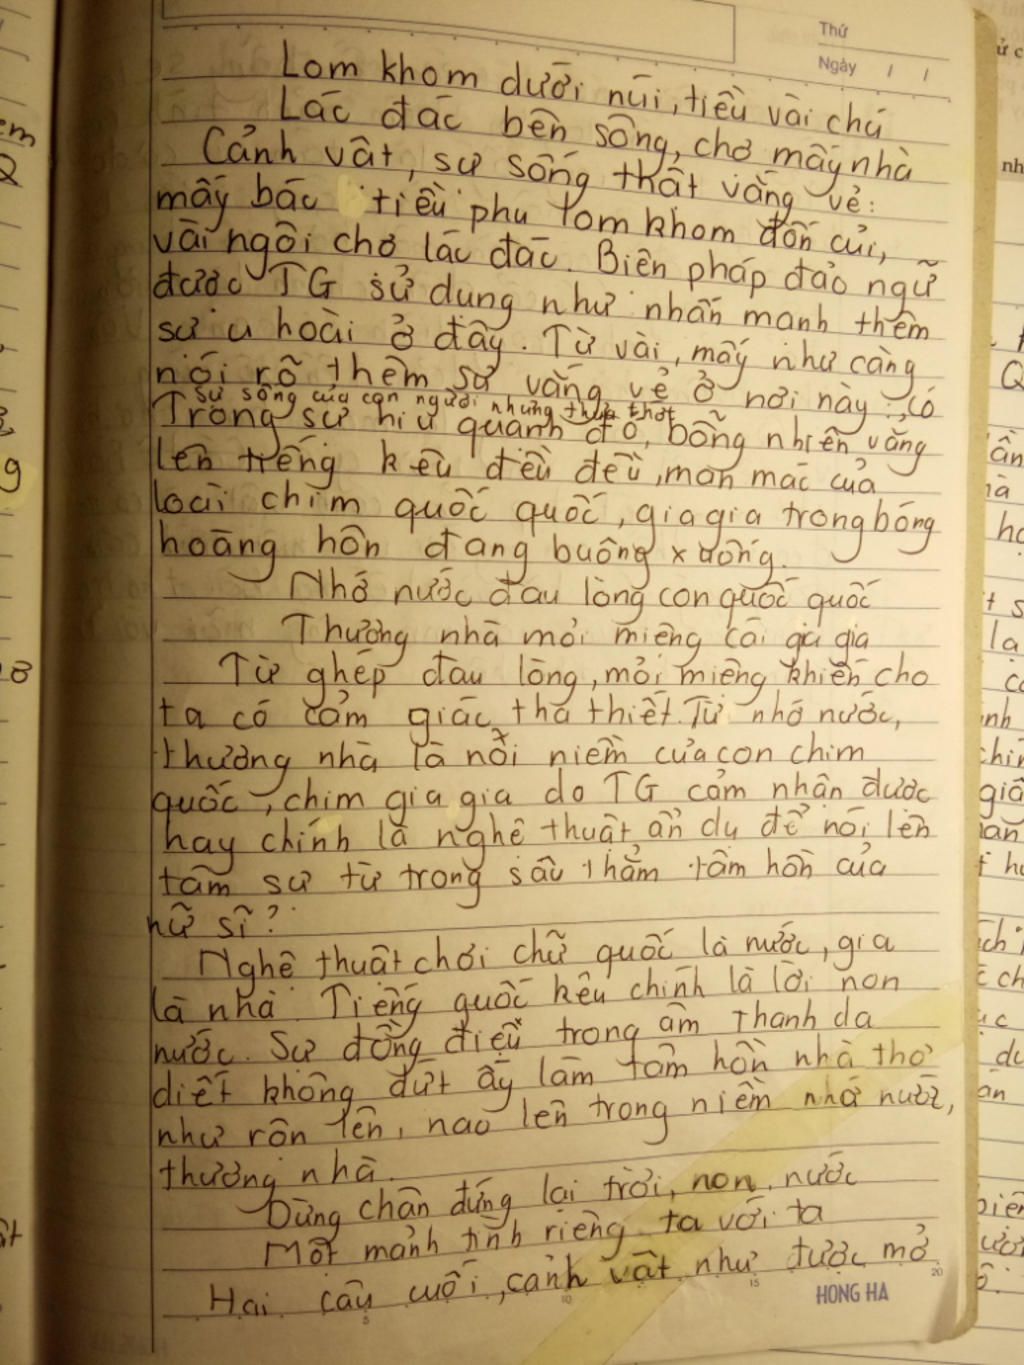 Thứ
Ngày / /
Lom khom dưới núi, tiều vài chú
Lác đác bên sông, chợ mấy nhà
Cảnh vật, sự sống thật vắng vẻ:
mấy bác tiều phu lom khom đốn củi,
vài ngôi chợ lác đác. Biện pháp đảo ngữ
được TG sử dụng như nhấn mạnh thêm
sự u hoài ở đây. Từ vài, mấy như càng
nói rõ thêm sự vắng vẻ ở nơi này :, có
sự sống của con người nhưng thưa thớt
Trong sự hiu quạnh đó, bỗng nhiên vẳng
lên tiếng kêu đều đều, man mác của
loài chim quốc quốc, gia gia trong bóng
hoàng hôn đang buông xuống.
Nhớ nước đau lòng con quốc quốc
Thương nhà mỏi miệng cái gia gia
Từ ghép đau lòng, mỏi miệng khiến cho
ta có cảm giác tha thiết. Từ nhớ nước,
thương nhà là nỗi niềm của con chim
quốc, chim gia gia do TG cảm nhận được
hay chính là nghệ thuật ẩn dụ để nói lên
tâm sự từ trong sâu thẳm tâm hồn của
nữ sĩ?
Nghệ thuật chơi chữ quốc là nước, gia
là nhà. Tiếng quốc kêu chính là lời non
nước. Sự đồng điệu trong âm thanh da
diết không dứt ấy làm tâm hồn nhà thơ
như rộn lên, nao lên trong niềm nhớ nước,
thương nhà.
Dừng chân đứng lại trời, non, nước
Một mảnh tình riêng ta với ta
Hai câu cuối, cảnh vật như được mở
5 10 15 20
HONG HA